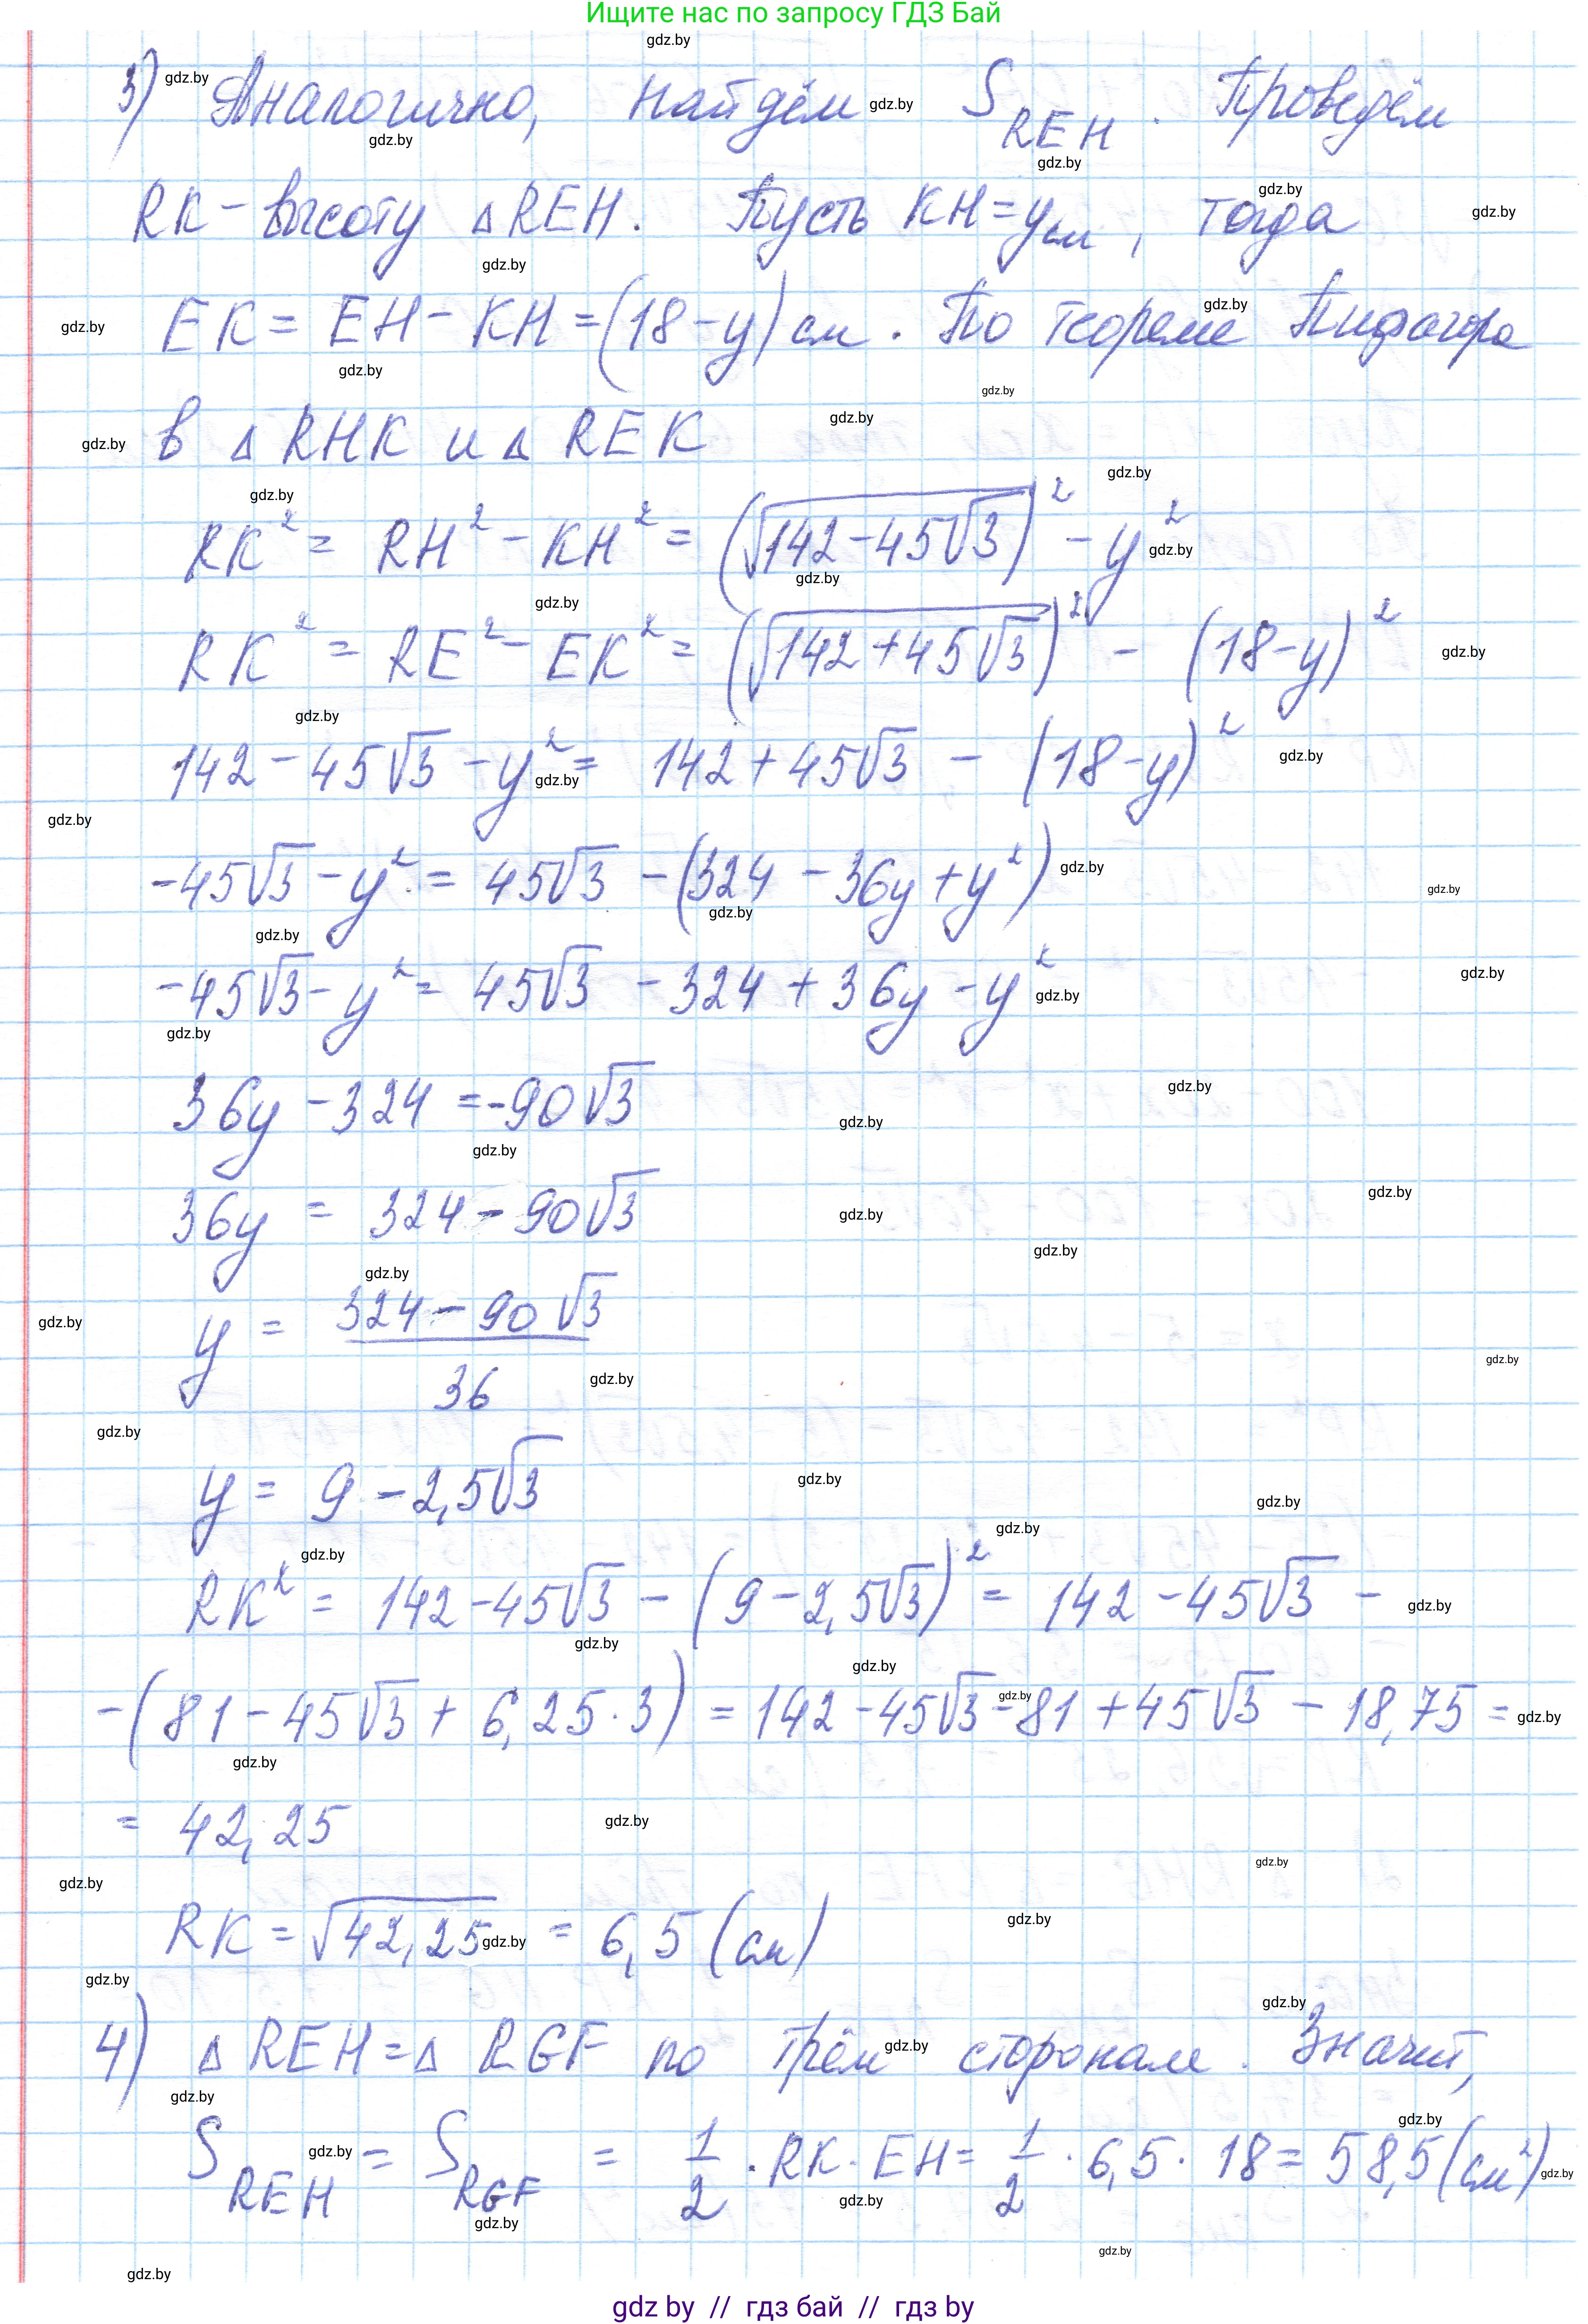 Ищите нас по запросу ГДЗ Бай
3) Аналогично, найдём S_REH. Проведём
RK - высоту △REH. Пусть KH = y см, тогда
EK = EH - KH = (18 - y) см. По теореме Пифагора
в △ RHK и △ REK
RK² = RH² - KH² = (√(142 - 45√3))² - y²
RK² = RE² - EK² = (√(142 + 45√3))² - (18 - y)²
142 - 45√3 - y² = 142 + 45√3 - (18 - y)²
-45√3 - y² = 45√3 - (324 - 36y + y²)
-45√3 - y² = 45√3 - 324 + 36y - y²
36y - 324 = -90√3
36y = 324 - 90√3
y = (324 - 90√3)/36
y = 9 - 2,5√3
RK² = 142 - 45√3 - (9 - 2,5√3)² = 142 - 45√3 -
-(81 - 45√3 + 6,25·3) = 142 - 45√3 - 81 + 45√3 - 18,75 =
= 42,25
RK = √42,25 = 6,5 (см)
4) △ REH = △ RGF по трём сторонам. Значит,
S_REH = S_RGF = 1/2 · RK · EH = 1/2 · 6,5 · 18 = 58,5 (см²)
gdz by // гдз бай // гдз by